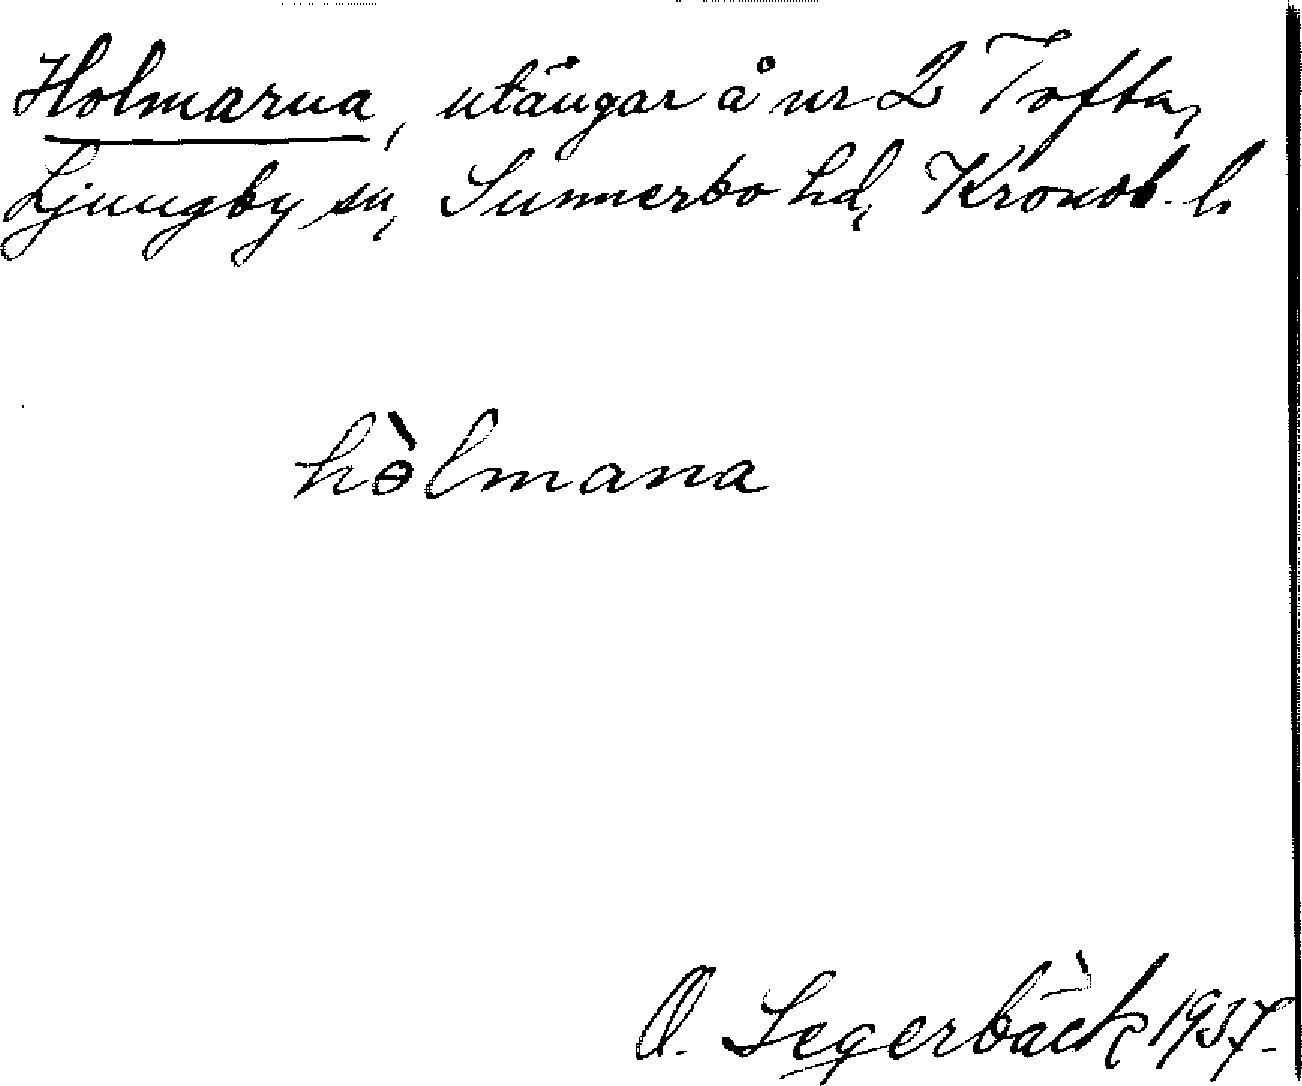 Holmarna, utängar å nr 2 Tofta,
Ljungby sn, Sunnerbo hd, Kronob. l.
hòlmana
O. Segerbäck 1937.